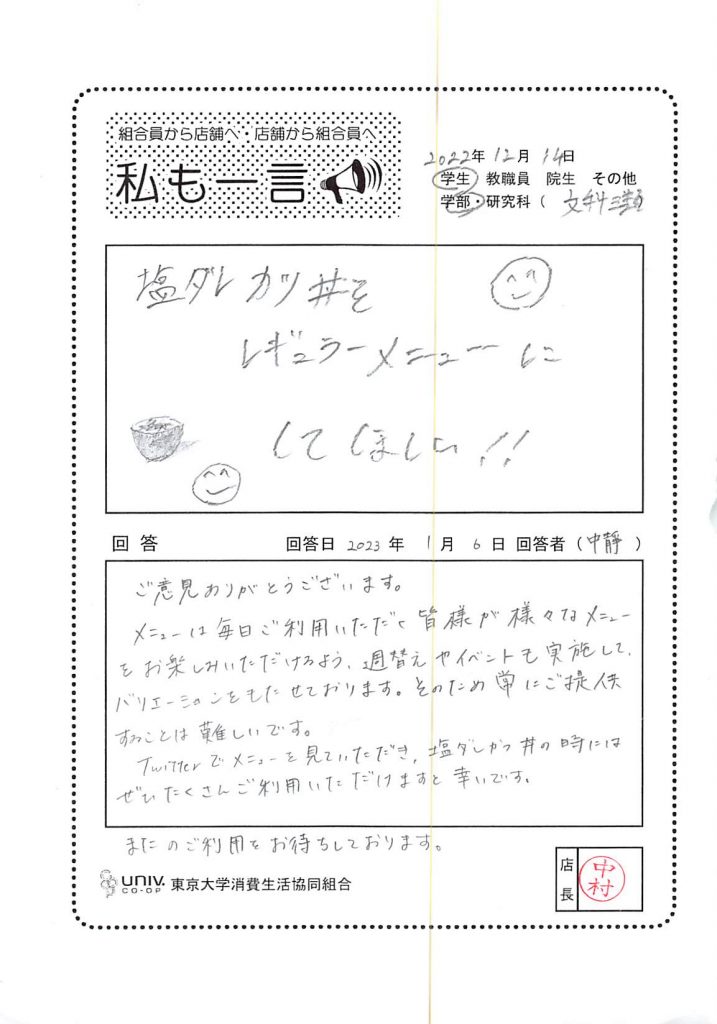 組合員から店舗へ・店舗から組合員へ
私も一言
2022年12月14日
学生 教職員 院生 その他
学部・研究科 ( 文科三類
塩ダレカツ丼を
レギュラーメニューに
してほしい!!
回答 回答日 2023 年 1 月 6 日 回答者 (中靜)
ご意見ありがとうございます。
メニューは毎日ご利用いただく皆様が様々なメニュー
をお楽しみいただけるよう、週替えやイベントも実施して、
バリエーションをもたせております。そのため常にご提供
することは難しいです。
Twitterでメニューを見ていただき、塩ダレカツ丼の時には
ぜひたくさんご利用いただけますと幸いです。
またのご利用をお待ちしております。
UNIV. CO-OP 東京大学消費生活協同組合
店長 中村